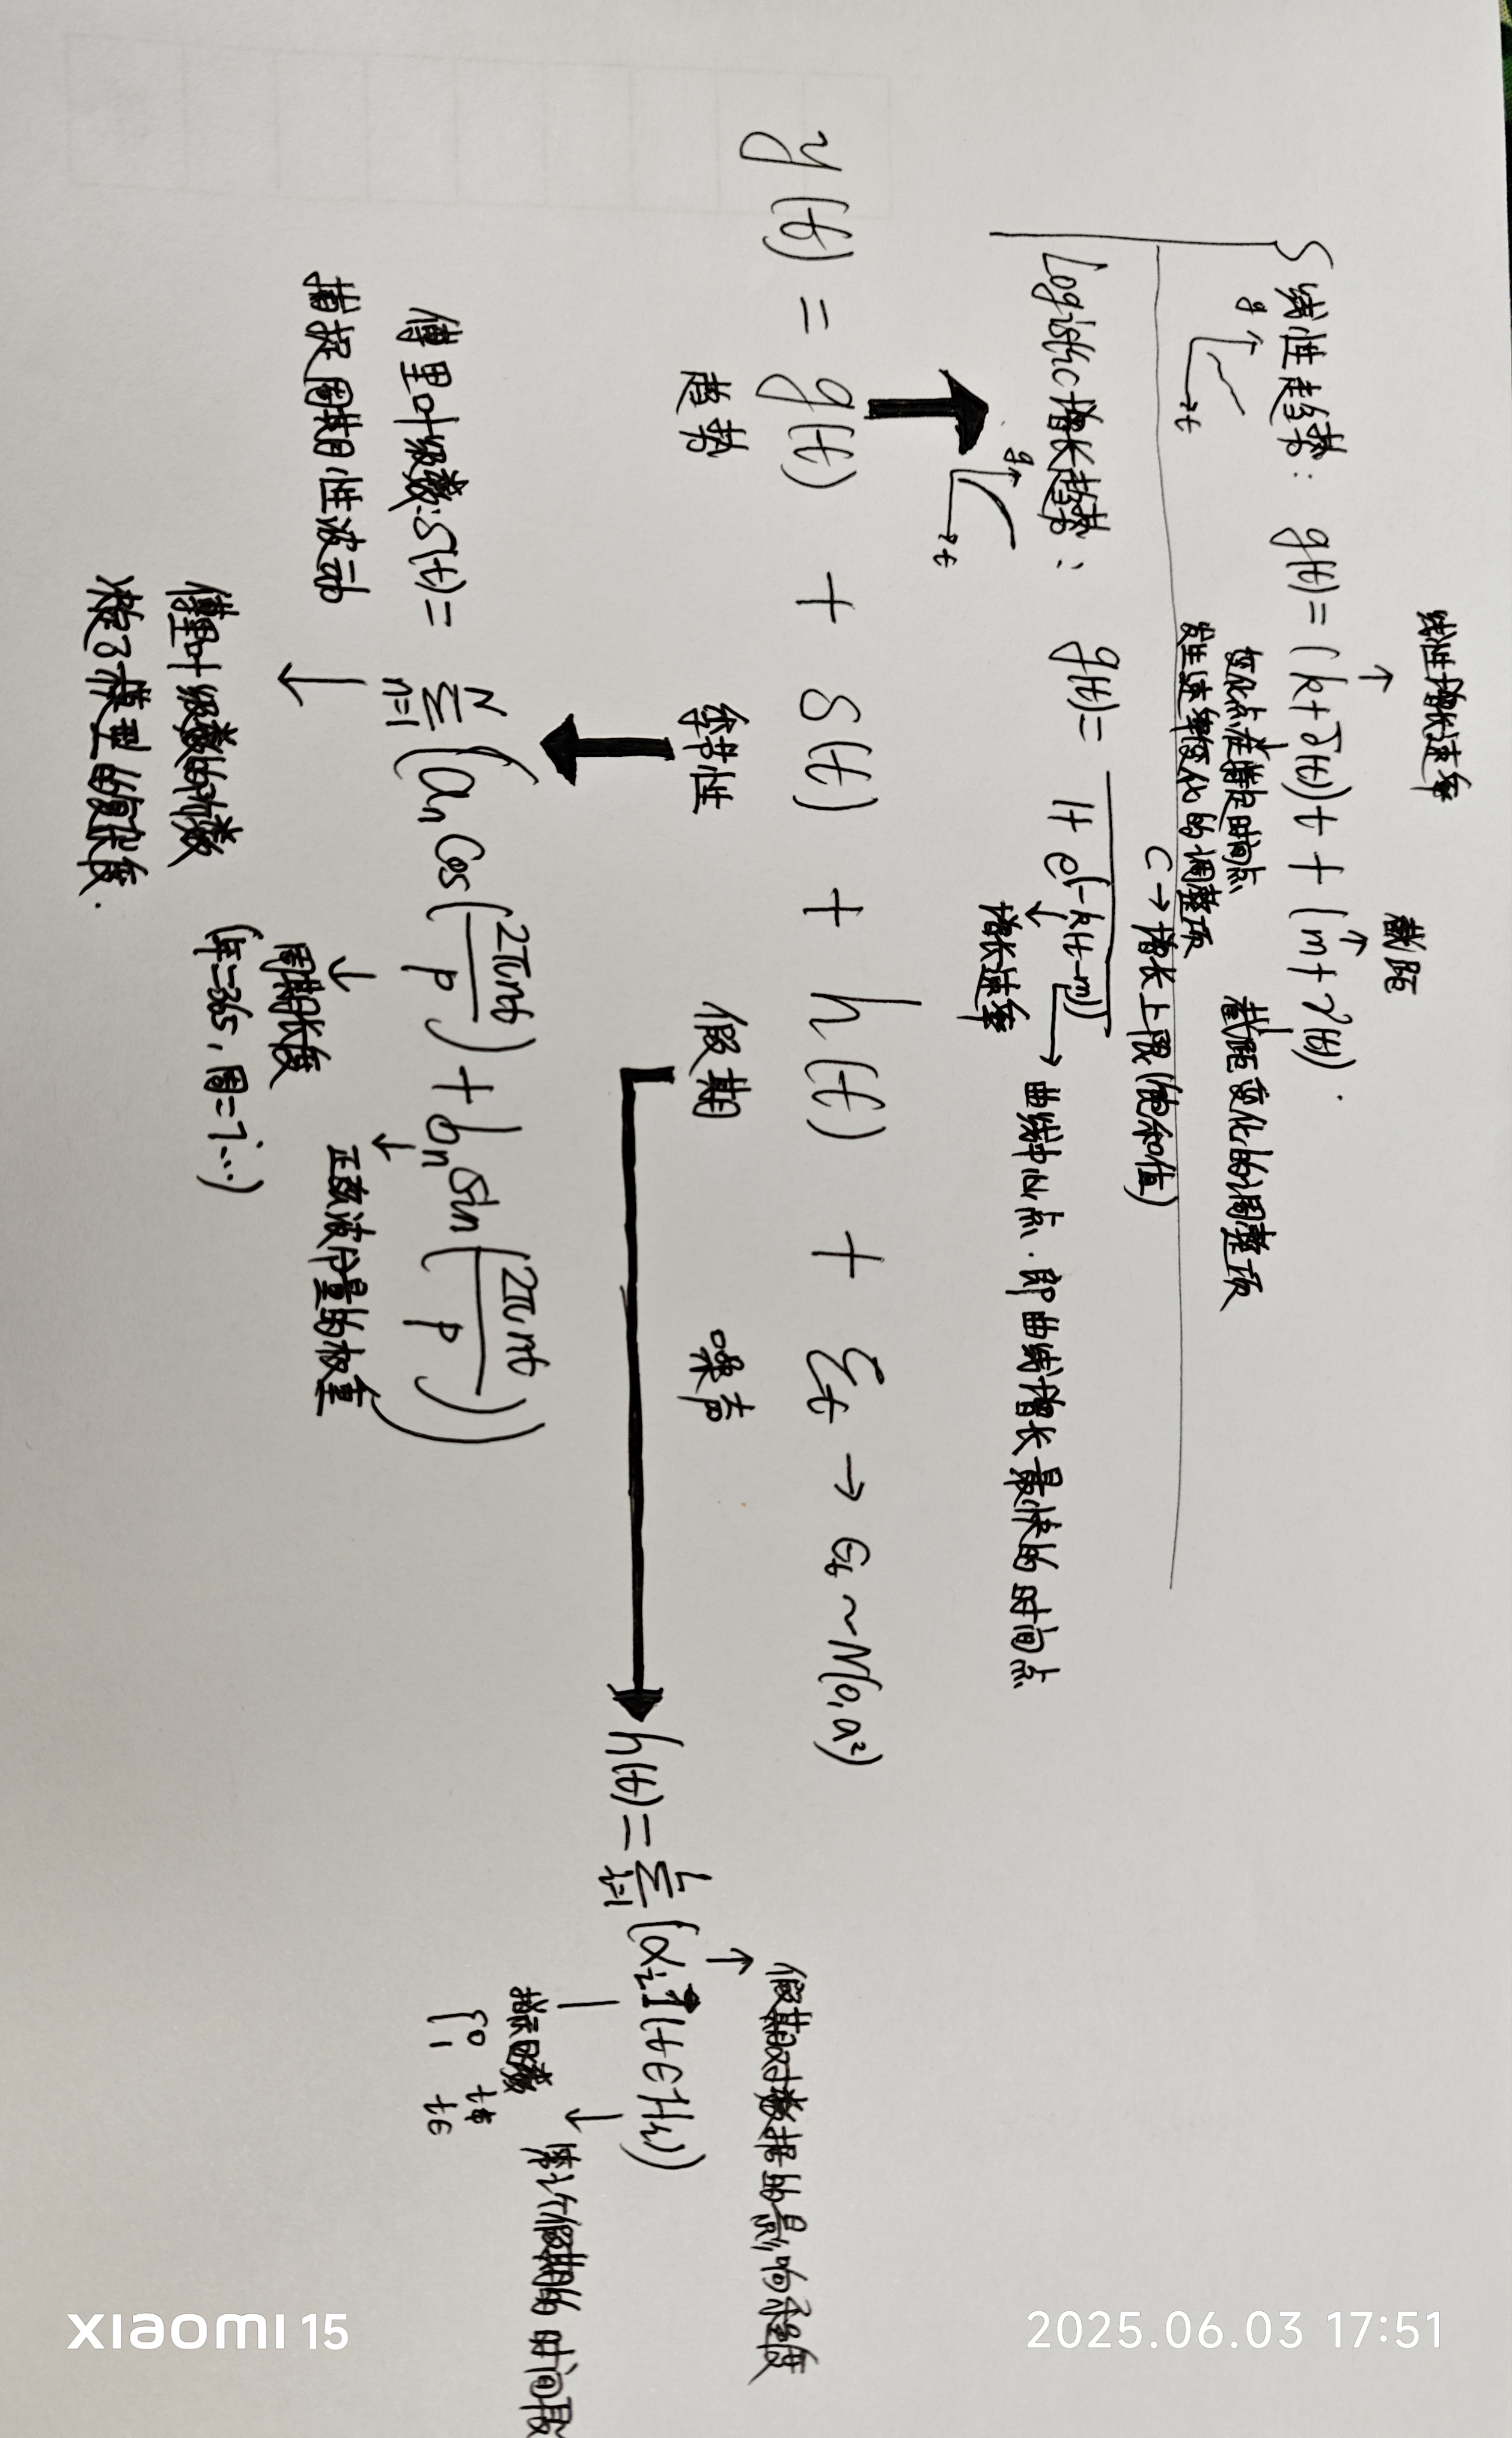 线性增长速率
截距
线性趋势： g(t) = (k+δ(t))t + (m+γ(t)).
g
t
变化点在特定时间点
发生速率变化的调整项
截距变化的调整项
C → 增长上限(饱和值)
Logisthc增长趋势： g(t) = 1+ e(-k(t-m))
增长速率
曲线中心点.即曲线增长最快的时间点
g
t
y(t) = g(t) + s(t) + h(t) + εt → εt ~ N(0,a²)
趋势 季节性 假期 噪声
假期对数据的影响程度
h(t) = L Σ i=1 (αi 1(t∈Hi))
指示函数
第i个假期的时间段
{0 t∉
1 t∈
傅里叶级数:S(t) = N Σ n=1 (an cos(2πnt/P) + bn sin(2πnt/P))
捕捉周期性波动
正弦波分量的权重
周期长度
(年=365,周=7...)
傅里叶级数的阶数
决定了模型的复杂度.
xiaomi 15
2025.06.03 17:51